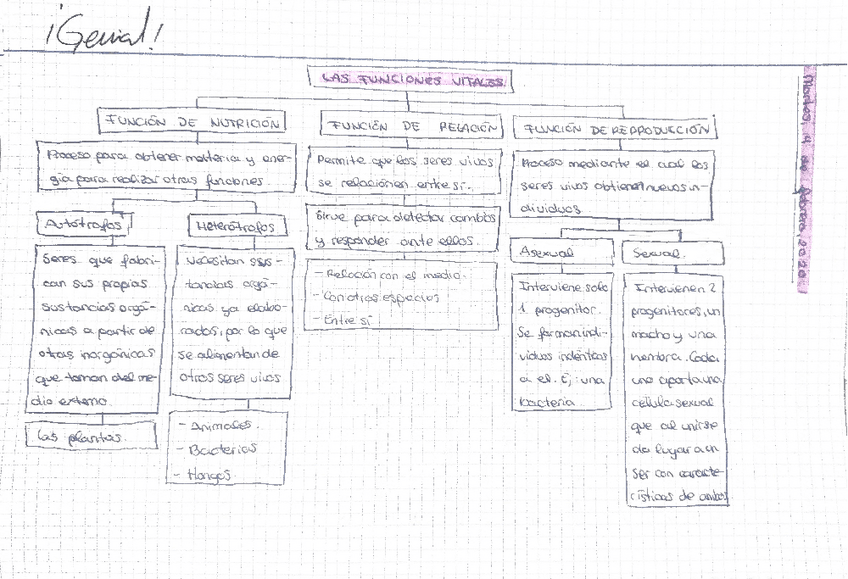 ¡Genial!
LAS FUNCIONES VITALES.
Martes, 4 de febrero 2020
FUNCIÓN DE NUTRICIÓN
Proceso para obtener materia y ener-
gía para realizar otras funciones
Autótrofos
Seres que fabri-
can sus propias
sustancias orgá-
nicas a partir de
otras inorgánicas
que toman del me-
dio externo.
Las plantas.
Heterótrofos
Necesitan sus-
tancias orgá-
nicas ya elabo-
radas, por lo que
se alimentan de
otros seres vivos
- Animales.
- Bacterias
- Hongos
FUNCIÓN DE RELACIÓN
Permite que los seres vivos
se relacionen entre sí.
Sirve para detectar cambios
y responder ante ellos.
- Relación con el medio.
- Con otras especies
- Entre sí
FUNCIÓN DE REPRODUCCIÓN
Proceso mediante el cual los
seres vivos obtienen nuevos in-
dividuos
Asexual
Interviene solo
1 progenitor.
Se forman indi-
viduos indénticos
a él. Ej: una
bacteria.
Sexual.
Intervienen 2
progenitores, un
macho y una
hembra. Cada
uno aporta una
célula sexual
que al unirse
da lugar a un
ser con caracte-
rísticas de ambos